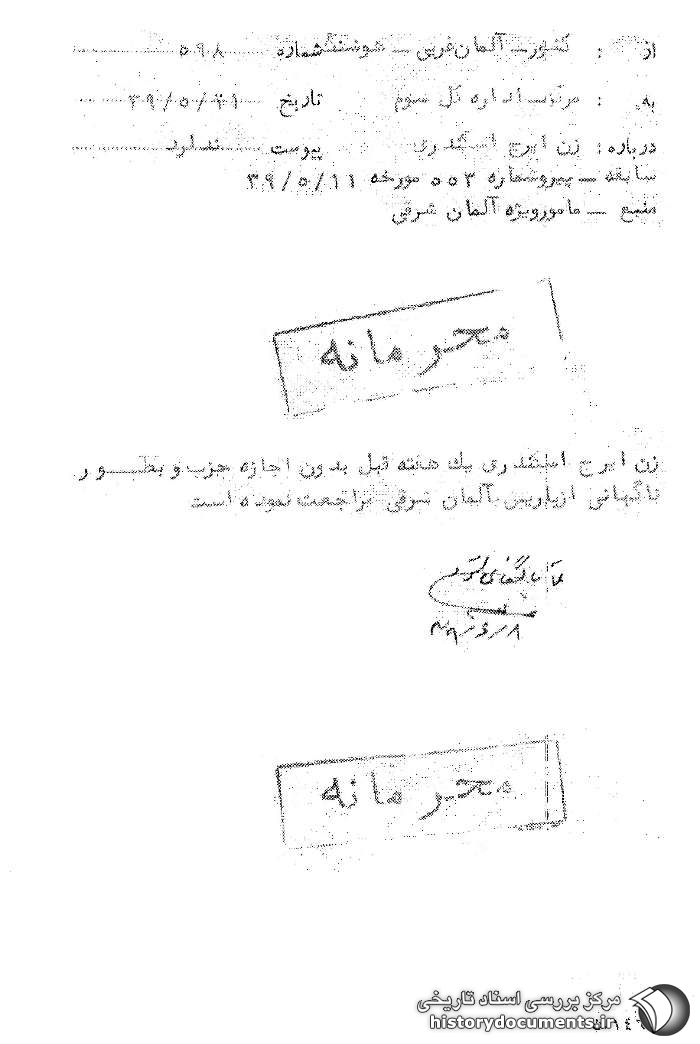 از : کشور ـ آلمان غربی ـ شماره ۵۹۸
به : مرکز ـ اداره کل سوم تاریخ ۳۹/۵/۲۱
درباره : زن ایرج اسکندری پیوست ندارد
سابقه ـ پیروشماره ۵۵۳ مورخه ۳۹/۵/۱۱
منبع ـ مامورویژه آلمان شرقی
محرمانه
زن ایرج اسکندری یک هفته قبل بدون اجازه حزب و بطور
ناگهانی ازپاریس بآلمان شرقی مراجعت نموده است
۳۹/۶/۸
محرمانه
مرکز بررسی اسناد تاریخی
historydocuments.ir